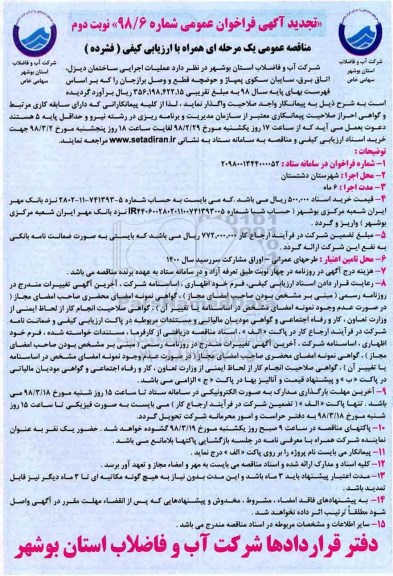 «تجدید آگهی فراخوان عمومی شماره ۹۸/۶» نوبت دوم
مناقصه عمومی یک مرحله ای همراه با ارزیابی کیفی ( فشرده )
شرکت آب و فاضلاب
استان بوشهر
سهامی خاص
شرکت آب و فاضلاب
استان بوشهر
سهامی خاص
شرکت آب و فاضلاب استان بوشهر در نظر دارد عملیات اجرایی ساختمان دیزل،
اتاق برق، سایبان سکوی پمپاژ و حوضچه قطع و وصل برازجان را که بر اساس
فهرست بهای پایه سال ۹۸ به مبلغ تقریبی ۳۵۶,۱۹۸,۴۲۲,۱۵ ریال برآورد گردیده
است به شرح ذیل به پیمانکار واجد صلاحیت واگذار نماید . لذا از کلیه پیمانکارانی که دارای سابقه کاری مرتبط
و گواهی احراز صلاحیت پیمانکاری معتبر از سازمان مدیریت و برنامه ریزی در رشته نیرو و حداقل پایه ۵ هستند
دعوت بعمل می آید که از ساعت ۱۷ روز یکشنبه مورخ ۹۸/۲/۲۹ لغایت ساعت ۱۸ روز پنجشنبه مورخ ۹۸/۳/۲ جهت
خرید اسناد ارزیابی کیفی و مناقصه به سامانه ستاد به نشانی www.setadiran.ir مراجعه نمایند.
توضیحات :
۱– شماره فراخوان در سامانه ستاد : ۲۰۹۸۰۰۱۳۴۴۰۰۰۰۵۲
۲– محل اجرا : شهرستان دشتستان
۳– مدت اجرا : ۶ ماه
۴– قیمت خرید اسناد ۵۰۰,۰۰۰ ریال می باشد .که می بایست به حساب شماره ۵–۷۴۱۳۹۳–۱۱–۲۸۰۲ نزد بانک مهر
ایران شعبه مرکزی بوشهر ( حساب شبا شماره IR۴۴۰۶۰۰۲۸۰۲۰۱۱۰۰۷۴۱۳۹۳۰۰۵ نزد بانک مهر ایران شعبه مرکزی
بوشهر ) واریز و گردد .
۵– مبلغ تضمین شرکت در فرآیند ارجاع کار ۷۷۲,۰۰۰,۰۰۰ ریال می باشد که بایستی به صورت ضمانت نامه بانکی
به نفع این شرکت ارائه گردد .
۶– محل تامین اعتبار : طرحهای عمرانی – اوراق مشارکت سررسید سال ۱۴۰۰
۷– هزینه درج آگهی در روزنامه در چهار نوبت طبق تعرفه آزاد و در سامانه ستاد به عهده برنده مناقصه می باشد .
۸– رعایت قرار دادن اسناد ارزیابی کیفی، فرم خود اظهاری ، اساسنامه شرکت ، آخرین آگهی تغییرات مندرج در
روزنامه رسمی ( مبنی بر مشخص بودن صاحب امضای مجاز ) ، گواهی نمونه امضای محضری صاحب امضای مجاز (
در صورت عدم وجود نمونه امضای مشخص در اساسنامه یا تغییر آن ) ، گواهی صلاحیت انجام کار از لحاظ ایمنی از
وزارت تعاون ، کار و رفاه اجتماعی و گواهی مودیان مالیاتی و مستندات مربوطه در پاکت ارزیابی کیفی و ضمانت نامه
شرکت در فرآیند ارجاع کار در پاکت « الف » ، اسناد مناقصه دریافتی از کارفرما ، مستندات خواسته شده ، فرم خود
اظهاری ، اساسنامه شرکت ، آخرین آگهی تغییرات مندرج در روزنامه رسمی ( مبنی بر مشخص بودن صاحب امضای
مجاز ) ، گواهی نمونه امضای محضری صاحب امضای مجاز( در صورت عدم وجود نمونه امضای مشخص در اساسنامه
یا تغییر آن ) ، گواهی صلاحیت انجام کار از لحاظ ایمنی از وزارت تعاون ، کار و رفاه اجتماعی و گواهی مودیان مالیاتی
در پاکت « ب » و پیشنهاد قیمت و آنالیز بها در پاکت « ج » الزامی می باشد .
۹– آخرین مهلت بارگذاری مدارک به صورت الکترونیکی در سامانه ستاد تا ساعت ۱۵ روز شنبه مورخ ۹۸/۳/۱۸ می
باشد . تنها پاکت « الف » ( تضمین شرکت در فرآیند ارجاع کار ) می بایست به صورت فیزیکی تا ساعت ۱۵ روز
شنبه مورخ ۹۸/۳/۱۸ به دفتر حراست و امور محرمانه شرکت تحویل گردد.
۱۰– پاکتهای مناقصه در ساعت ۹ صبح روز یکشنبه مورخ ۹۸/۳/۱۹ گشوده خواهند شد . حضور یک نفر به عنوان
نماینده شرکت همراه با معرفی نامه در جلسه بازگشایی پاکتها بلامانع می باشد .
۱۱– پیمانکار می بایست نام پروژه را بر روی پاکت «الف » درج نماید .
۱۲– کلیه اسناد و مدارک ارائه شده و اسناد مناقصه می بایست به مهر و امضاء مجاز و تعهد آور برسد .
۱۳– مدت اعتبار پیشنهاد باید ۳ ماه باشد و این مدت بدون نیاز به هیچ گونه مکاتبه ای تا ۳ ماه دیگر نیز قابل
تمدید باشد .
۱۴– به پیشنهادهای فاقد امضاء ، مشروط ، مخدوش و پیشنهادهایی که پس از انقضاء مهلت مقرر در آگهی واصل
شود مطلقاً ترتیب اثر داده نخواهد شد .
۱۵– سایر اطلاعات و مشخصات مربوطه در اسناد مناقصه مندرج می باشد .
دفتر قراردادها شرکت آب و فاضلاب استان بوشهر